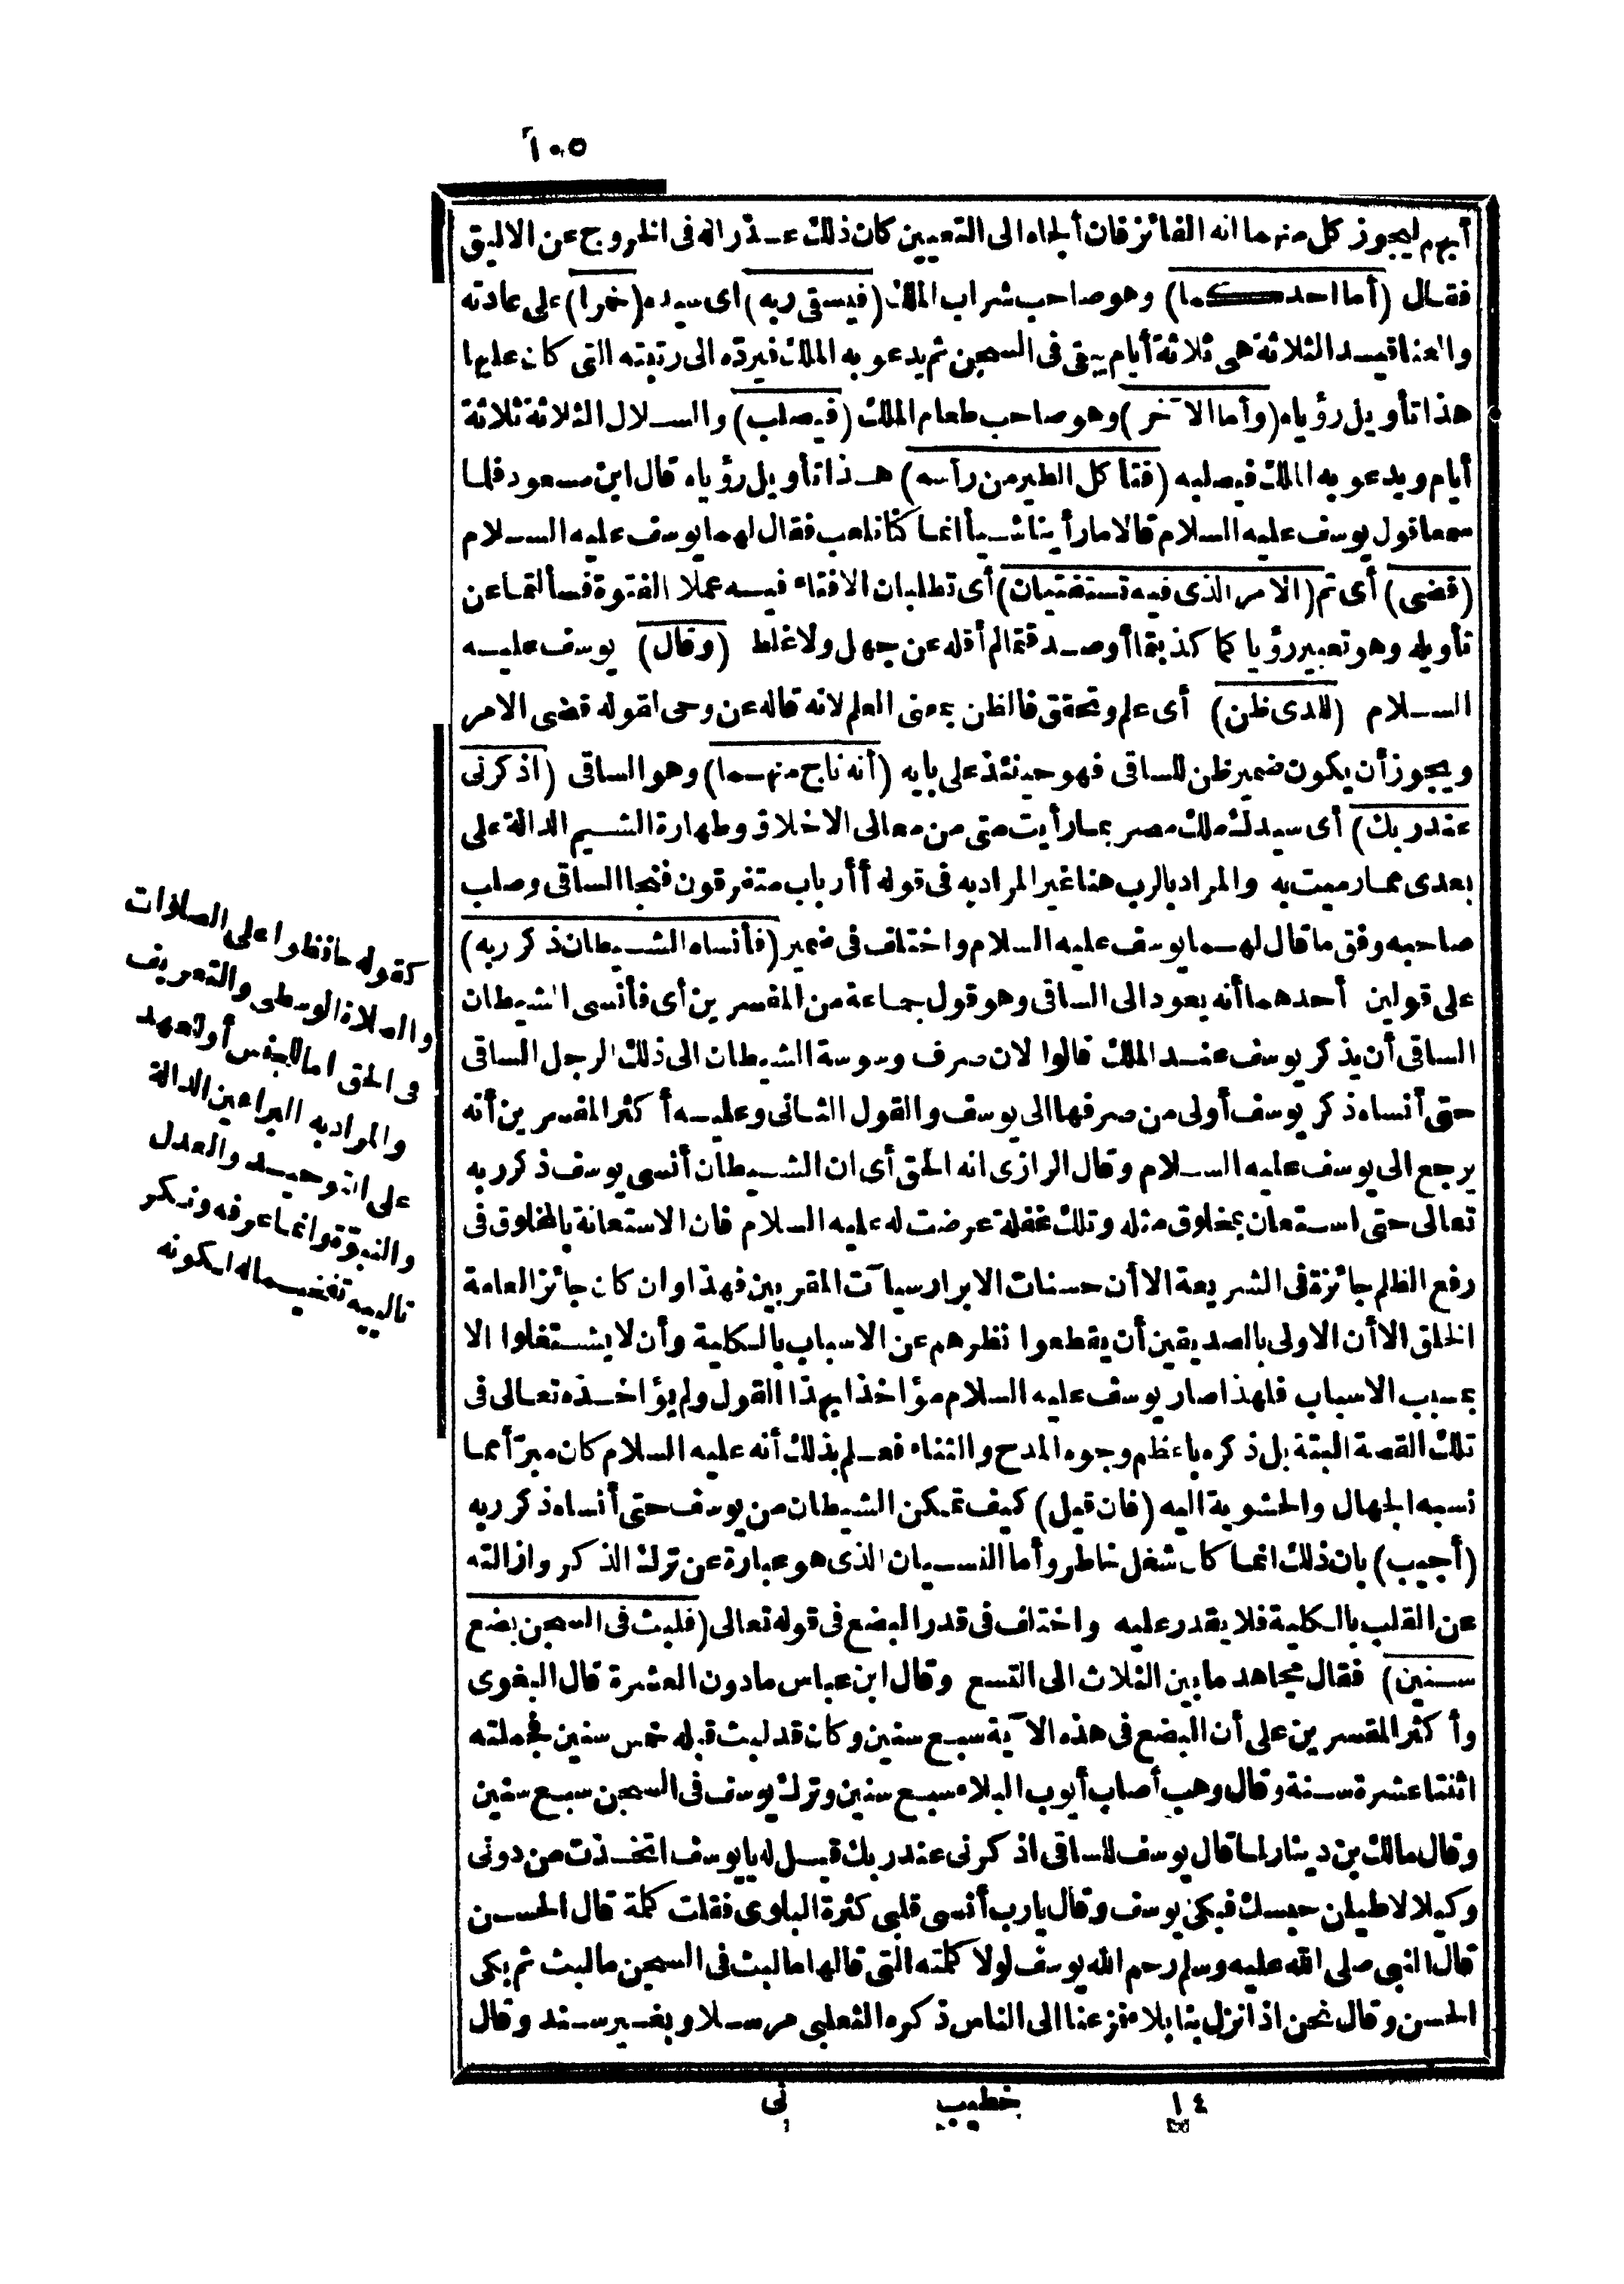 ١٠٥
أبهم ليجوز كل منهما انه الفائز فان ألجاه الى التعيين كان ذلك عذراله فى الخروج عن الاليق
فقال (أما احدكما) وهو صاحب شراب الملك (فيسقى ربه) اى سيده (خمرا) على عادته
والعناقيد الثلاثة هى ثلاثة أيام يبقى فى السجن ثم يدعو به الملك فيردّه الى رتبته التى كان عليها
هذا تأويل رؤياه (وأما الآخر) وهو صاحب طعام الملك (فيصلب) والسلال الثلاثة ثلاثة
أيام ويدعو به الملك فيصلبه (فتأكل الطير من رأسه) هذا تأويل رؤياه قال ابن مسعود فلما
سمعا قول يوسف عليه السلام قالا ما رأينا شيأ انما كنا نلعب فقال لهما يوسف عليه السلام
(قضى) أى تم (الامر الذى فيه تستفتيان) أى تطلبان الافتاء فيه عملا الفتوة فسألتما عن
تأويله وهو تعبير رؤياكما كذبتما أو صدقتما لم أقله عن جهل ولا غلط (وقال) يوسف عليه
السلام (للذى ظن) أى علم وتحقق فالظن بمعنى العلم لانه قاله عن وحى لقوله قضى الامر
ويجوز أن يكون ضمير ظن للساقى فهو حينئذ على بابه (أنه ناج منهما) وهو الساقى (اذكرنى
عند ربك) أى سيدك ملك مصر بما رأيت منى من معالى الاخلاق وطهارة الشيم الدالة على
بعدى مما رميت به والمراد بالرب هنا غير المراد به فى قوله أأرباب متفرقون فنجا الساقى وصلب
صاحبه وفق ما قال لهما يوسف عليه السلام واختلف فى ضمير (فأنساه الشيطان ذكر ربه)
على قولين أحدهما أنه يعود الى الساقى وهو قول جماعة من المفسرين أى فأنسى الشيطان
الساقى أن يذكر يوسف عند الملك قالوا لان صرف وسوسة الشيطان الى ذلك الرجل الساقى
حتى أنساه ذكر يوسف أولى من صرفها الى يوسف والقول الثانى وعليه أكثر المفسرين أنه
يرجع الى يوسف عليه السلام وقال الرازى انه الحق أى ان الشيطان أنسى يوسف ذكر ربه
تعالى حتى استعان بمخلوق مثله وتلك غفلة عرضت له عليه السلام فان الاستعانة بالمخلوق فى
رفع الظلم جائزة فى الشريعة الا أن حسنات الابرار سيآت المقربين فهذا وان كان جائز العامة
الخلق الا أن الاولى بالصديقين أن يقطعوا نظرهم عن الاسباب بالكلية وأن لا يشتغلوا الا
بمسبب الاسباب فلهذا صار يوسف عليه السلام مؤاخذا بهذا القول ولم يؤاخذه تعالى فى
تلك القصة البتة بل ذكره باعظم وجوه المدح والثناء فعلم بذلك أنه عليه السلام كان مبرّأ مما
نسبه الجهال والحشوية اليه (فان قيل) كيف تمكن الشيطان من يوسف حتى أنساه ذكر ربه
(أجيب) بان ذلك انما كان شغل خاطر وأما النسيان الذى هو عبارة عن ترك الذكر وازالته
عن القلب بالكلية فلا يقدر عليه واختلف فى قدر البضع فى قوله تعالى (فلبث فى السجن بضع
سنين) فقال مجاهد ما بين الثلاث الى التسع وقال ابن عباس ما دون العشرة قال البغوى
وأكثر المفسرين على أن البضع فى هذه الآية سبع سنين وكان قد لبث قبله خمس سنين فجملته
اثنتا عشرة سنة وقال وهب أصاب أيوب البلاء سبع سنين وترك يوسف فى السجن سبع سنين
وقال مالك بن دينار لما قال يوسف للساقى اذكرنى عند ربك قيل له يا يوسف اتخذت من دونى
وكيلا لاطيلن حبسك فبكى يوسف وقال يارب أنسى قلبى كثرة البلوى فقلت كلمة قال الحسن
قال النبى صلى الله عليه وسلم رحم الله يوسف لولا كلمته التى قالها ما لبث فى السجن ما لبث ثم بكى
الحسن وقال نحن اذا نزل بنا بلاء فزعنا الى الناس ذكره الثعلبى مرسلا وبغير سند وقال
كقوله حافظوا على الصلوات
والصلاة الوسطى والتعريف
فى الحق اما للجنس أو للعهد
والمراد به البراهين الدالة
على التوحيد والعدل
والنبوّة وانما عرفه ونكر
تالييه تفخيما له لكونه
١٤ خطيب نى